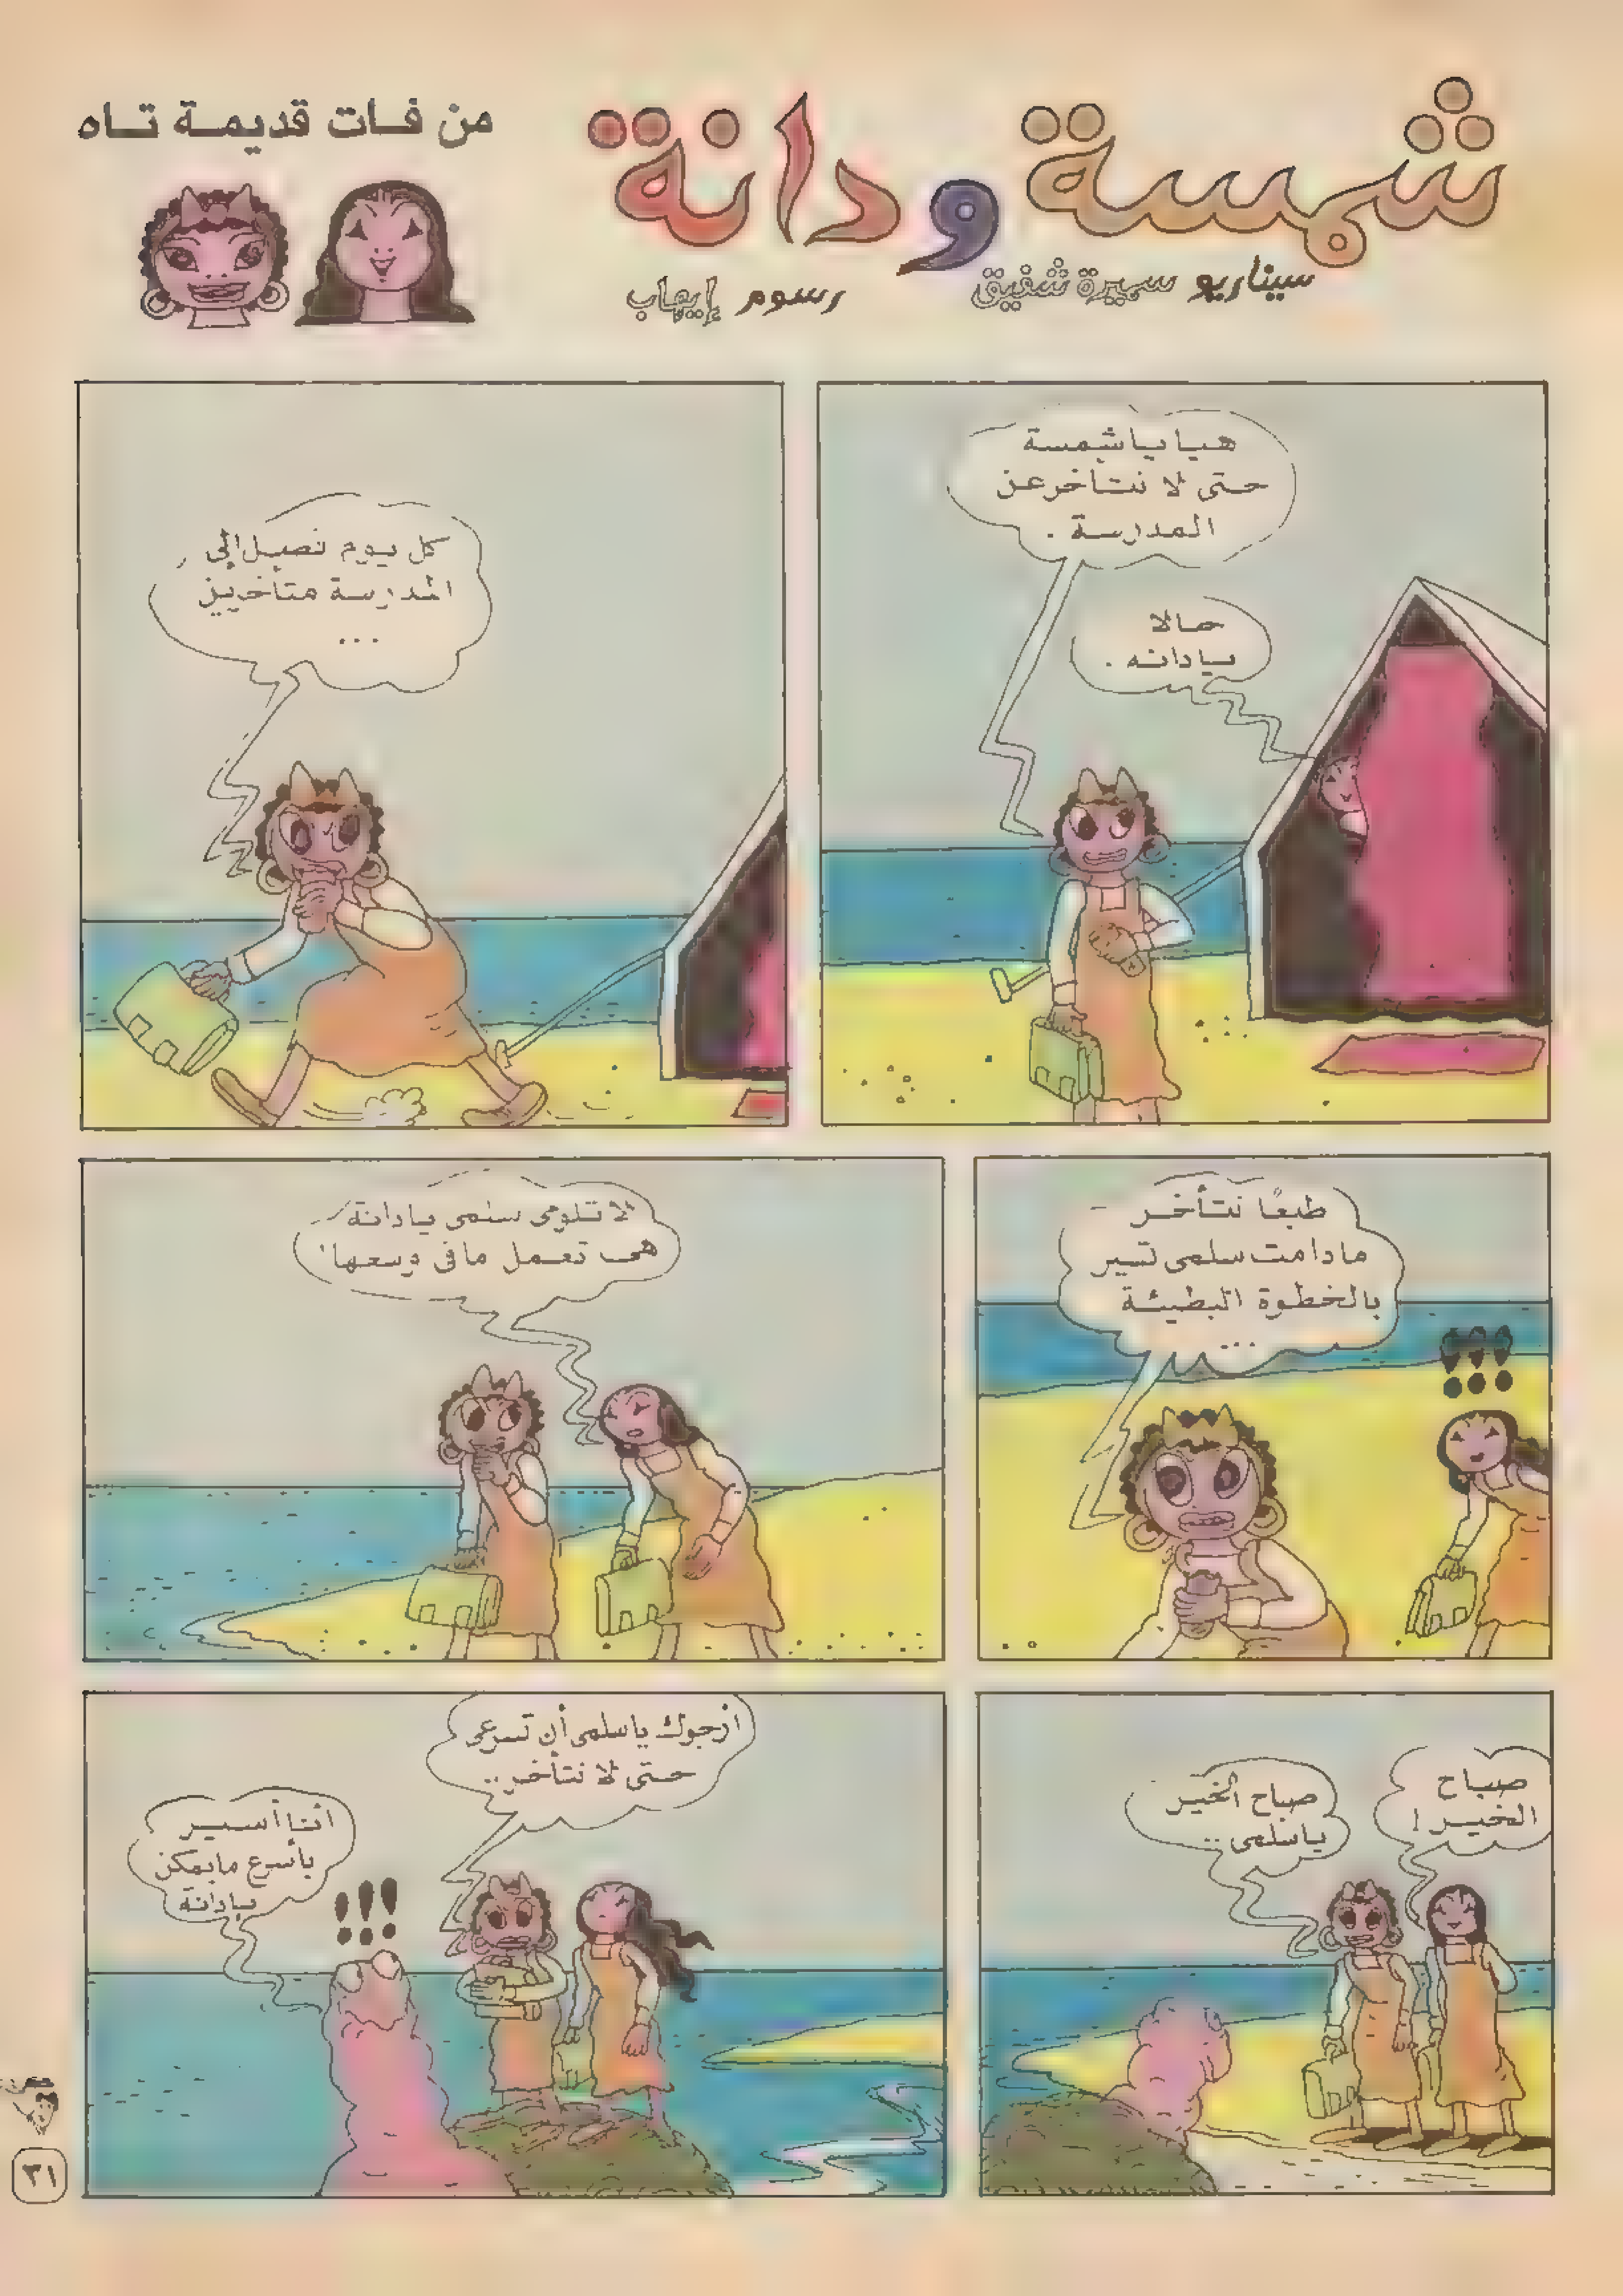 شمسة ودانة
من فات قديمة تاه
سيناريو سميرة شفيق
رسوم إيهاب
هيا يا شمسة
حتى لا نتأخر عن
المدرسة .
حالا
يا دانه .
كل يوم نصل إلى
المدرسة متأخرين
...
طبعًا نتأخر
ما دامت سلمى تسير
بالخطوة البطيئة
...
!!!
لا تلومى سلمى يا دانة
هى تعمل ما فى وسعها
صباح
الخير !
صباح الخير
يا سلمى ..
أرجوك يا سلمى أن تسرعى
حتى لا نتأخر ..
!!!
أنا أسير
بأسرع ما يمكن
يا دانة
٣١